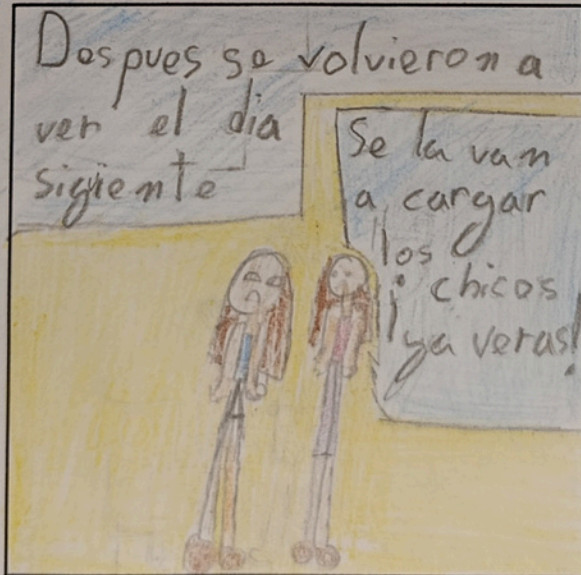 Despues se volvieron a
ver el dia
sigüente
Se la van
a cargar
los
chicos
¡ya veras!